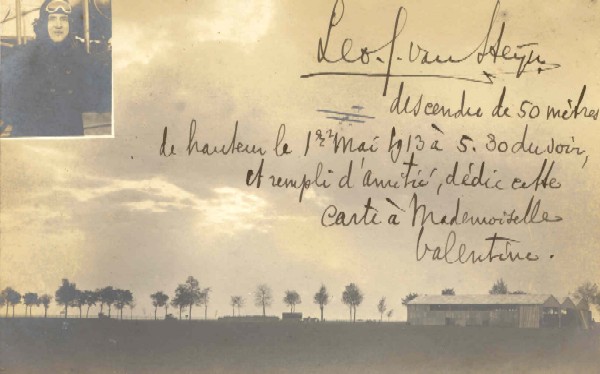 Leo. J. van Steyn
descendu de 50 mètres
de hauteur le 1er Mai 1913 à 5.30 du soir,
et rempli d'amitié, dédie cette
carte à Mademoiselle
Valentine.